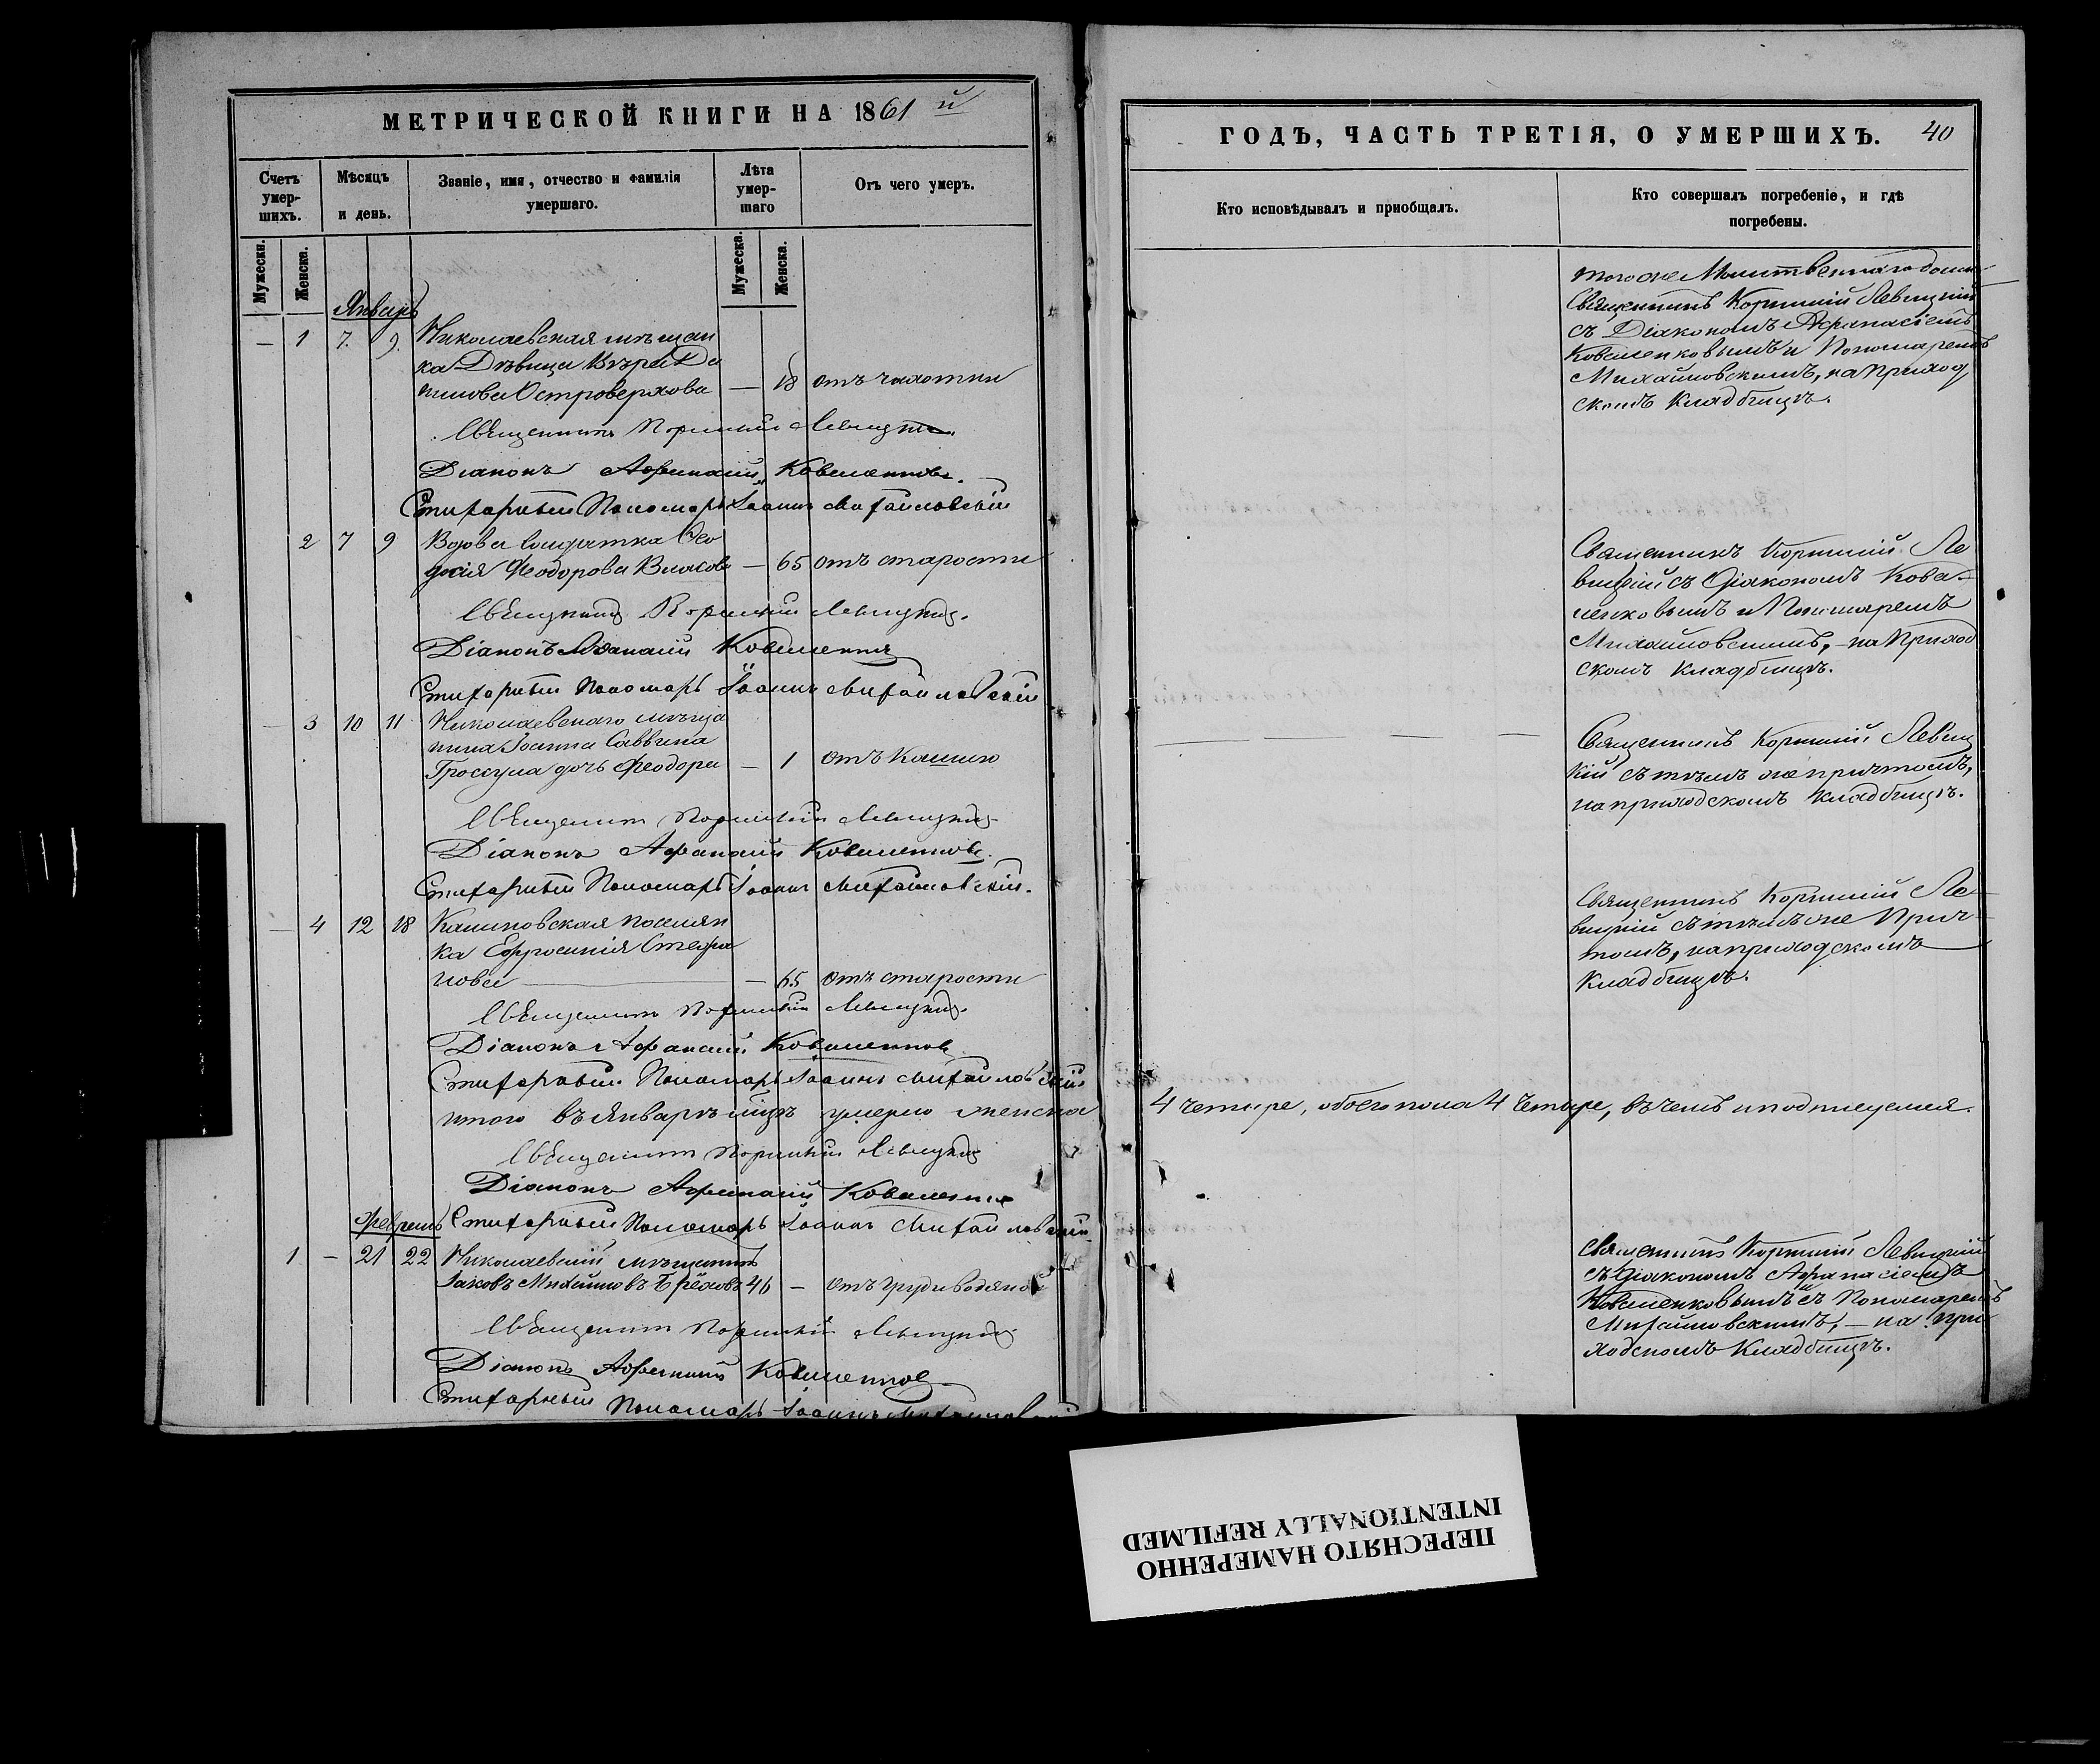 МЕТРИЧЕСКОЙ КНИГИ НА 1861 й
Счетъ умер-шихъ.
Мѣсяцъ и день.
Званіе, имя, отчество и фамилія умершаго.
Лѣта умер-шаго
Отъ чего умеръ.
Мужеска.
Женска.
Мужеска.
Женска.
Январь
— 1 7. 9. Николаевская мѣщан
ка Дѣвица Вѣра Да
нилова Островерхова — 18 отъ чахотки
Священникъ Корнилій Левицкій.
Діаконъ Афанасій Коваленковъ.
Стихарный Пономарь Іоаннъ Михайловскій
2 7 9 Вдова солдатка Ѳео
досія Ѳеодорова Власова — 65 отъ старости
Священникъ Корнилій Левицкій.
Діаконъ Афанасій Коваленковъ
Стихарный Пономарь Іоаннъ Михайловскій
— 3 10 11 Николаевскаго мѣща
нина Іоанна Саввина
Гроссула дочь Ѳеодора — 1 отъ кашлю
Священникъ Корнилій Левицкій
Діаконъ Афанасій Коваленковъ.
Стихарный Пономарь Іоаннъ Михайловскій.
— 4 12 18 Калиновская поселян
ка Ефросинія Стефа
нова — 65 отъ старости
Священникъ Корнилій Левицкій.
Діаконъ Афанасій Коваленковъ
Стихарный Пономарь Іоаннъ Михайловскій
итого въ Январѣ мцѣ умерло женска
Священникъ Корнилій Левицкій
Діаконъ Афанасій Коваленковъ
Стихарный Пономарь Іоаннъ Михайловскій
Февраль
1 — 21 22 Николаевскій мѣщанинъ
Іаковъ Михайловъ 46 — отъ грудиводяной
Священникъ Корнилій Левицкій
Діаконъ Афанасій Коваленковъ
Стихарный Пономарь Іоаннъ Михайловскій
ГОДЪ, ЧАСТЬ ТРЕТІЯ, О УМЕРШИХЪ. 40
Кто исповѣдывалъ и приобщалъ.
Кто совершалъ погребеніе, и гдѣ погребены.
тогоже Молитвеннаго дома
Священникъ Корнилій Левицкій
съ Діакономъ Афанасіемъ
Коваленковымъ и Пономаремъ
Михайловскимъ, на Приход
скомъ Кладбищѣ.
Священникъ Корнилій Ле
вицкій съ Діакономъ Кова-
ленковымъ и Пономаремъ
Михайловскимъ, — на Приход
скомъ кладбищѣ.
Священникъ Корнилій Левиц
кій съ тѣмъ же причтомъ,
на приходскомъ кладбищѣ.
Священникъ Корнилій Ле-
вицкій съ тѣмъ же Прич-
томъ, на приходскомъ
Кладбищѣ.
4 четыре, обоего пола 4 Четыре, въ чемъ и подписуемся.
Священникъ Корнилій Левицкій
съ Діакономъ Афанасіемъ
Коваленковымъ и съ Пономаремъ
Михайловскимъ, — на при
ходскомъ Кладбищѣ.
ПЕРЕСНЯТО НАМЕРЕННО
INTENTIONALLY REFILMED